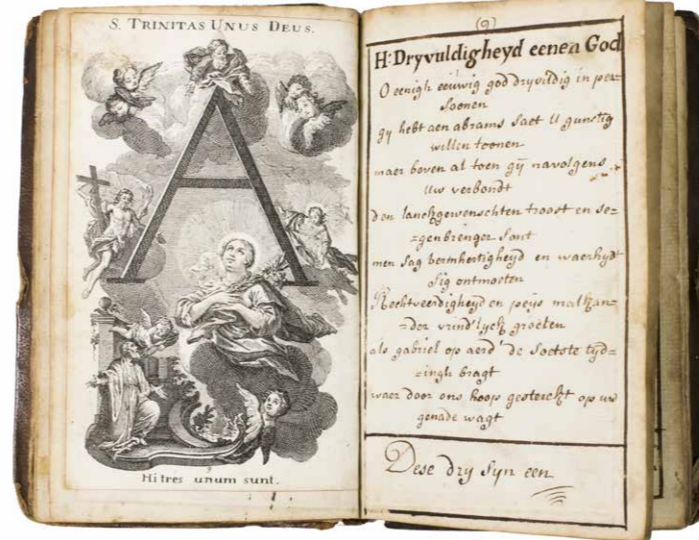 S. TRINITAS UNUS DEUS.
Hi tres unum sunt.
(9)
H: Dryvuldigheyd eenen God
O eenigh eeuwig god dryvildig in per=
soonen
gy hebt aen abrams saet U gunstig
willen toonen
maer boven al toen gy navolgens
Uw verbondt
den lanckgewenschten troost en se=
=genbrenger sont
men sag bermhertigheyd en waerhyd
sig ontmoeten
Rechtveerdigheyd en peys malkan=
=der vrind'lyck groeten
als gabriel op aerd' de soetste tyd=
=ingh bragt
waer door ons hoop gesterckt op uw
genade wagt
Dese dry syn een